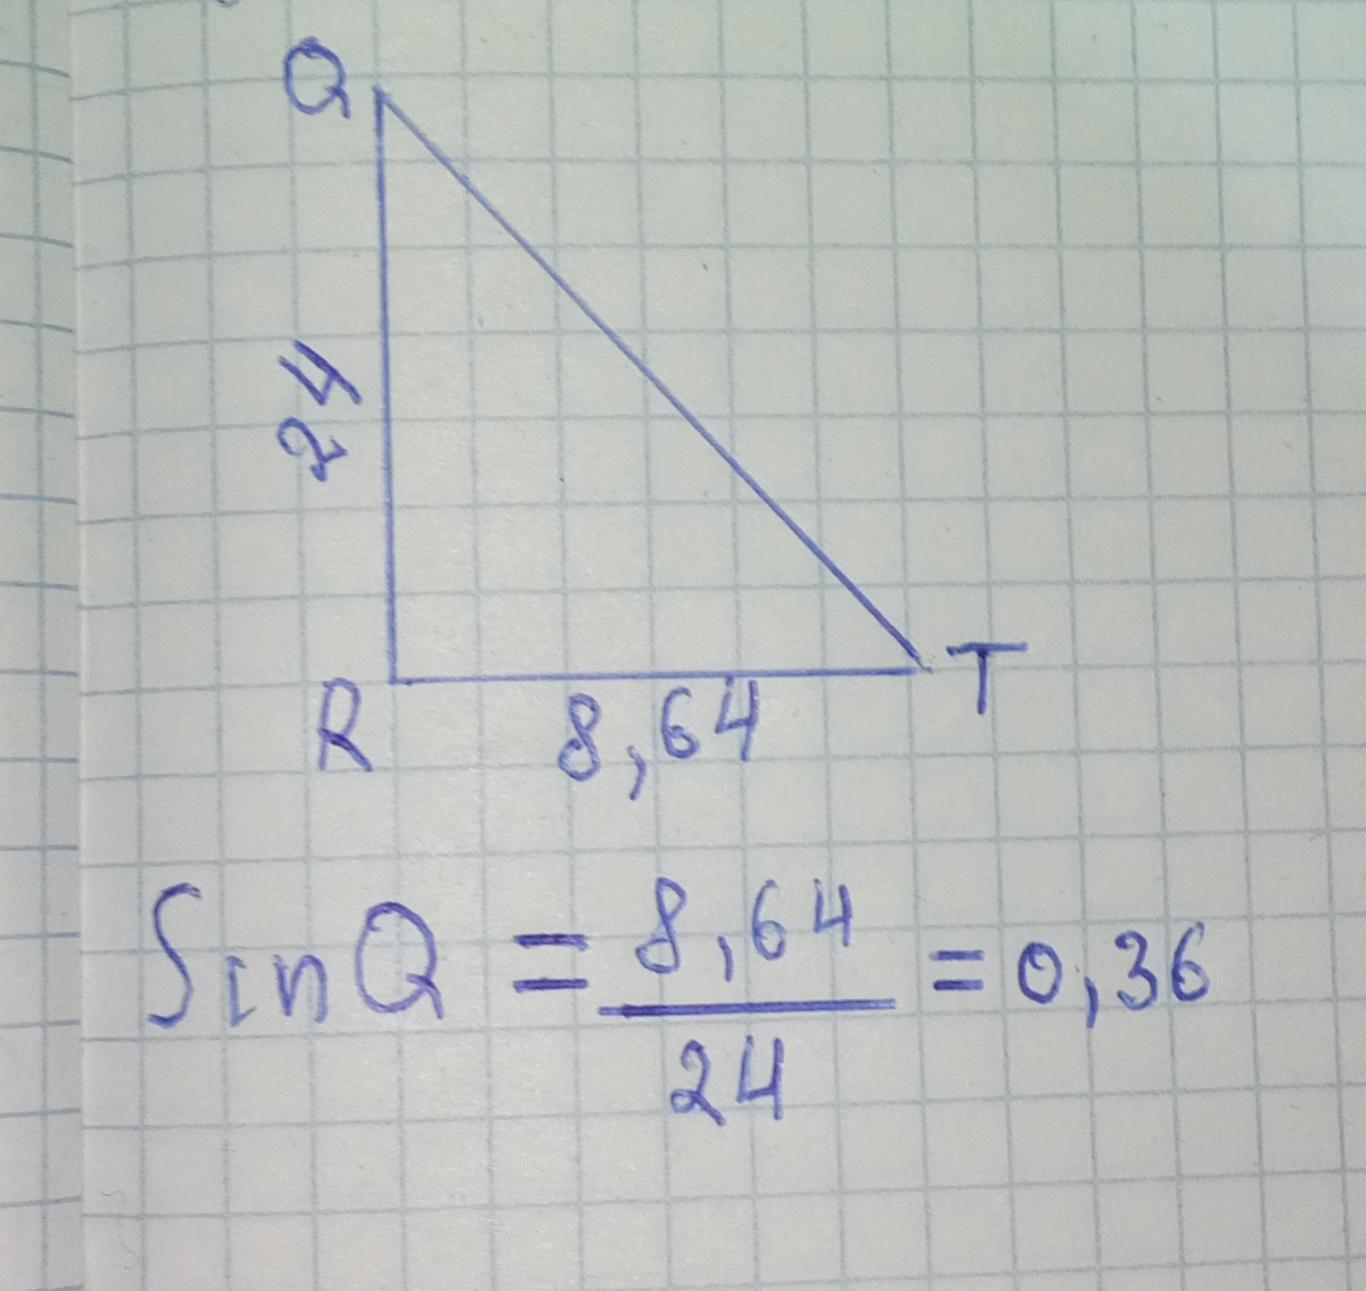 Q
24
R
8,64
T
Sin Q = 8,64 / 24 = 0,36